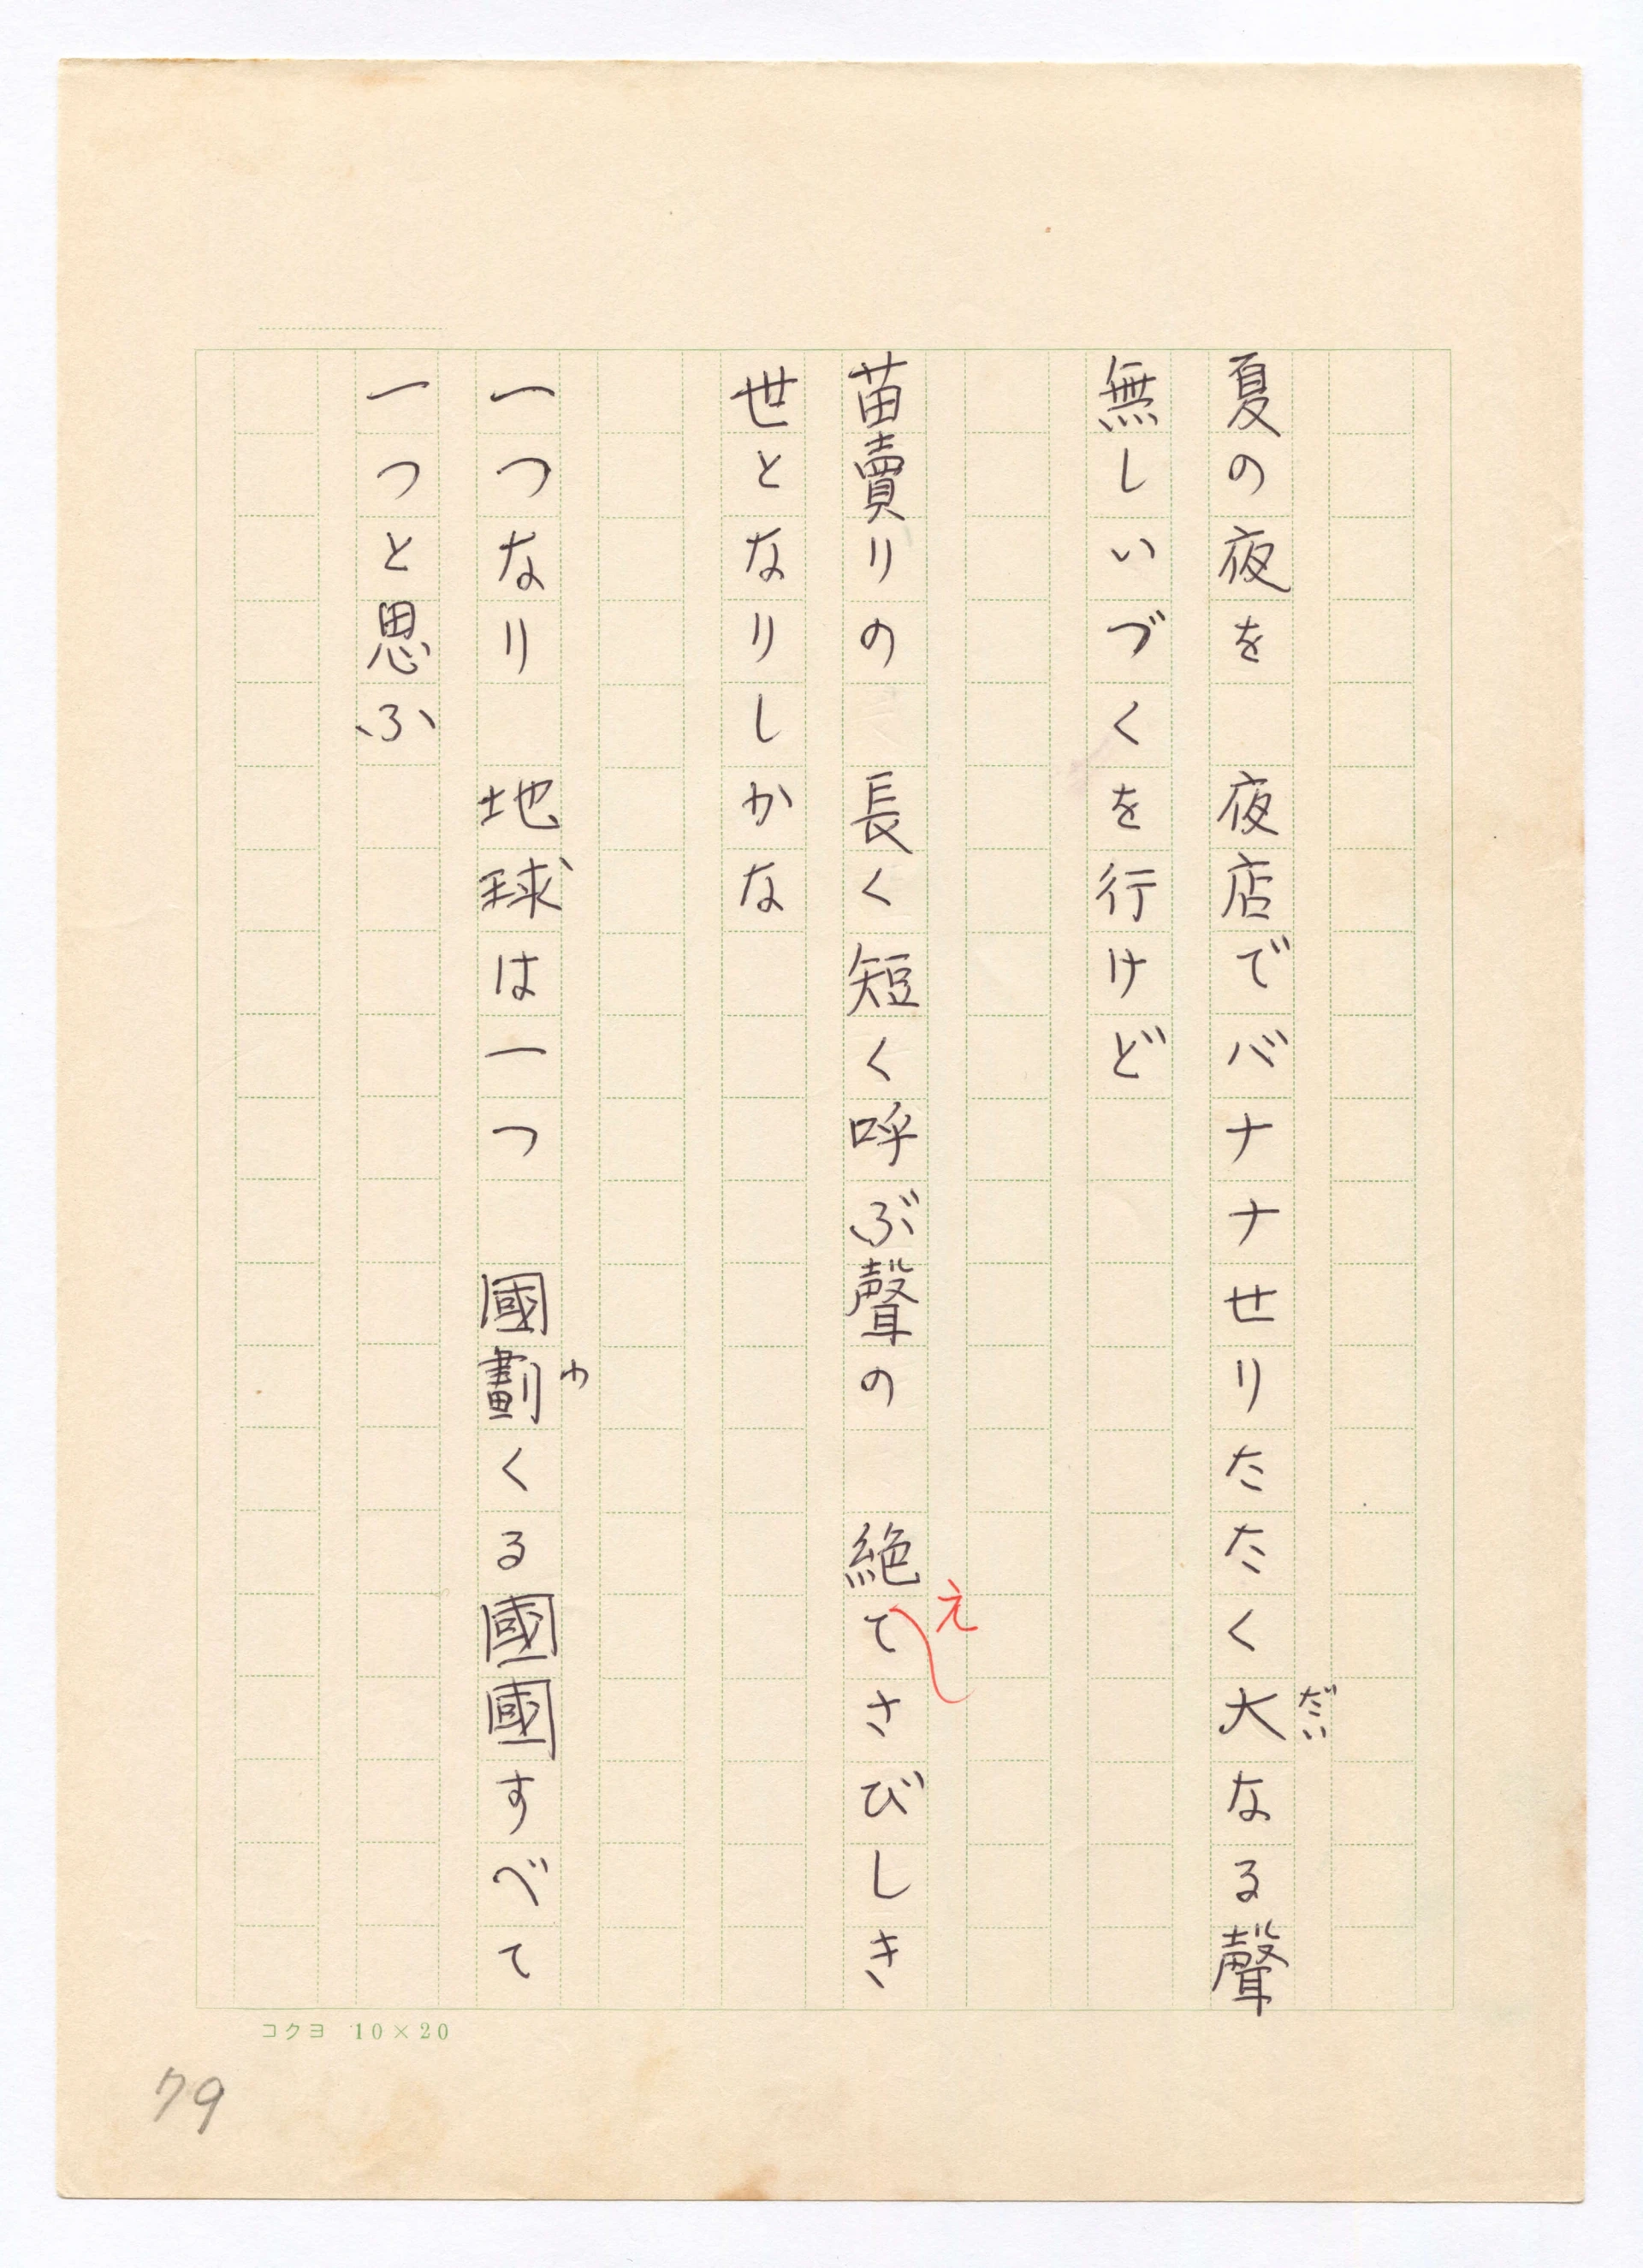 夏の夜を　夜店でバナナせりたたく大なる聲
だい
無しいづくを行けど
苗賣りの　長く短く呼ぶ聲の　絶てさびしき
え
世となりしかな
一つなり　地球は一つ　國劃くる國國すべて
わ
一つと思ふ
コクヨ 10×20
79